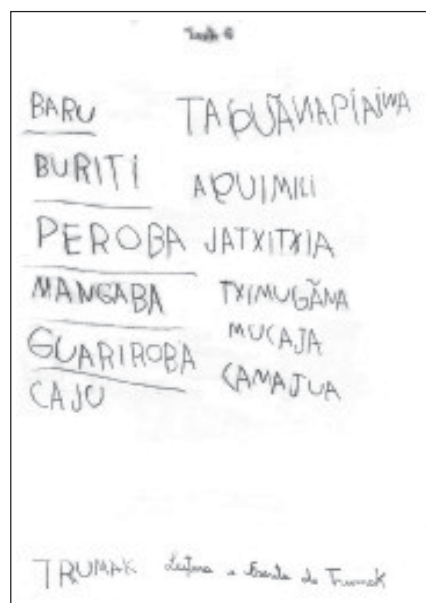 BARU TAQUÃNAPÍAIWA
BURITI AQUIMILI
PEROBA JATXITXIA
MANGABA TXIMUGÃNA
GUARIROBA MUCAJA
CAJU CAMAJUA
TRUMAK Leitura e Escrita do Trumak